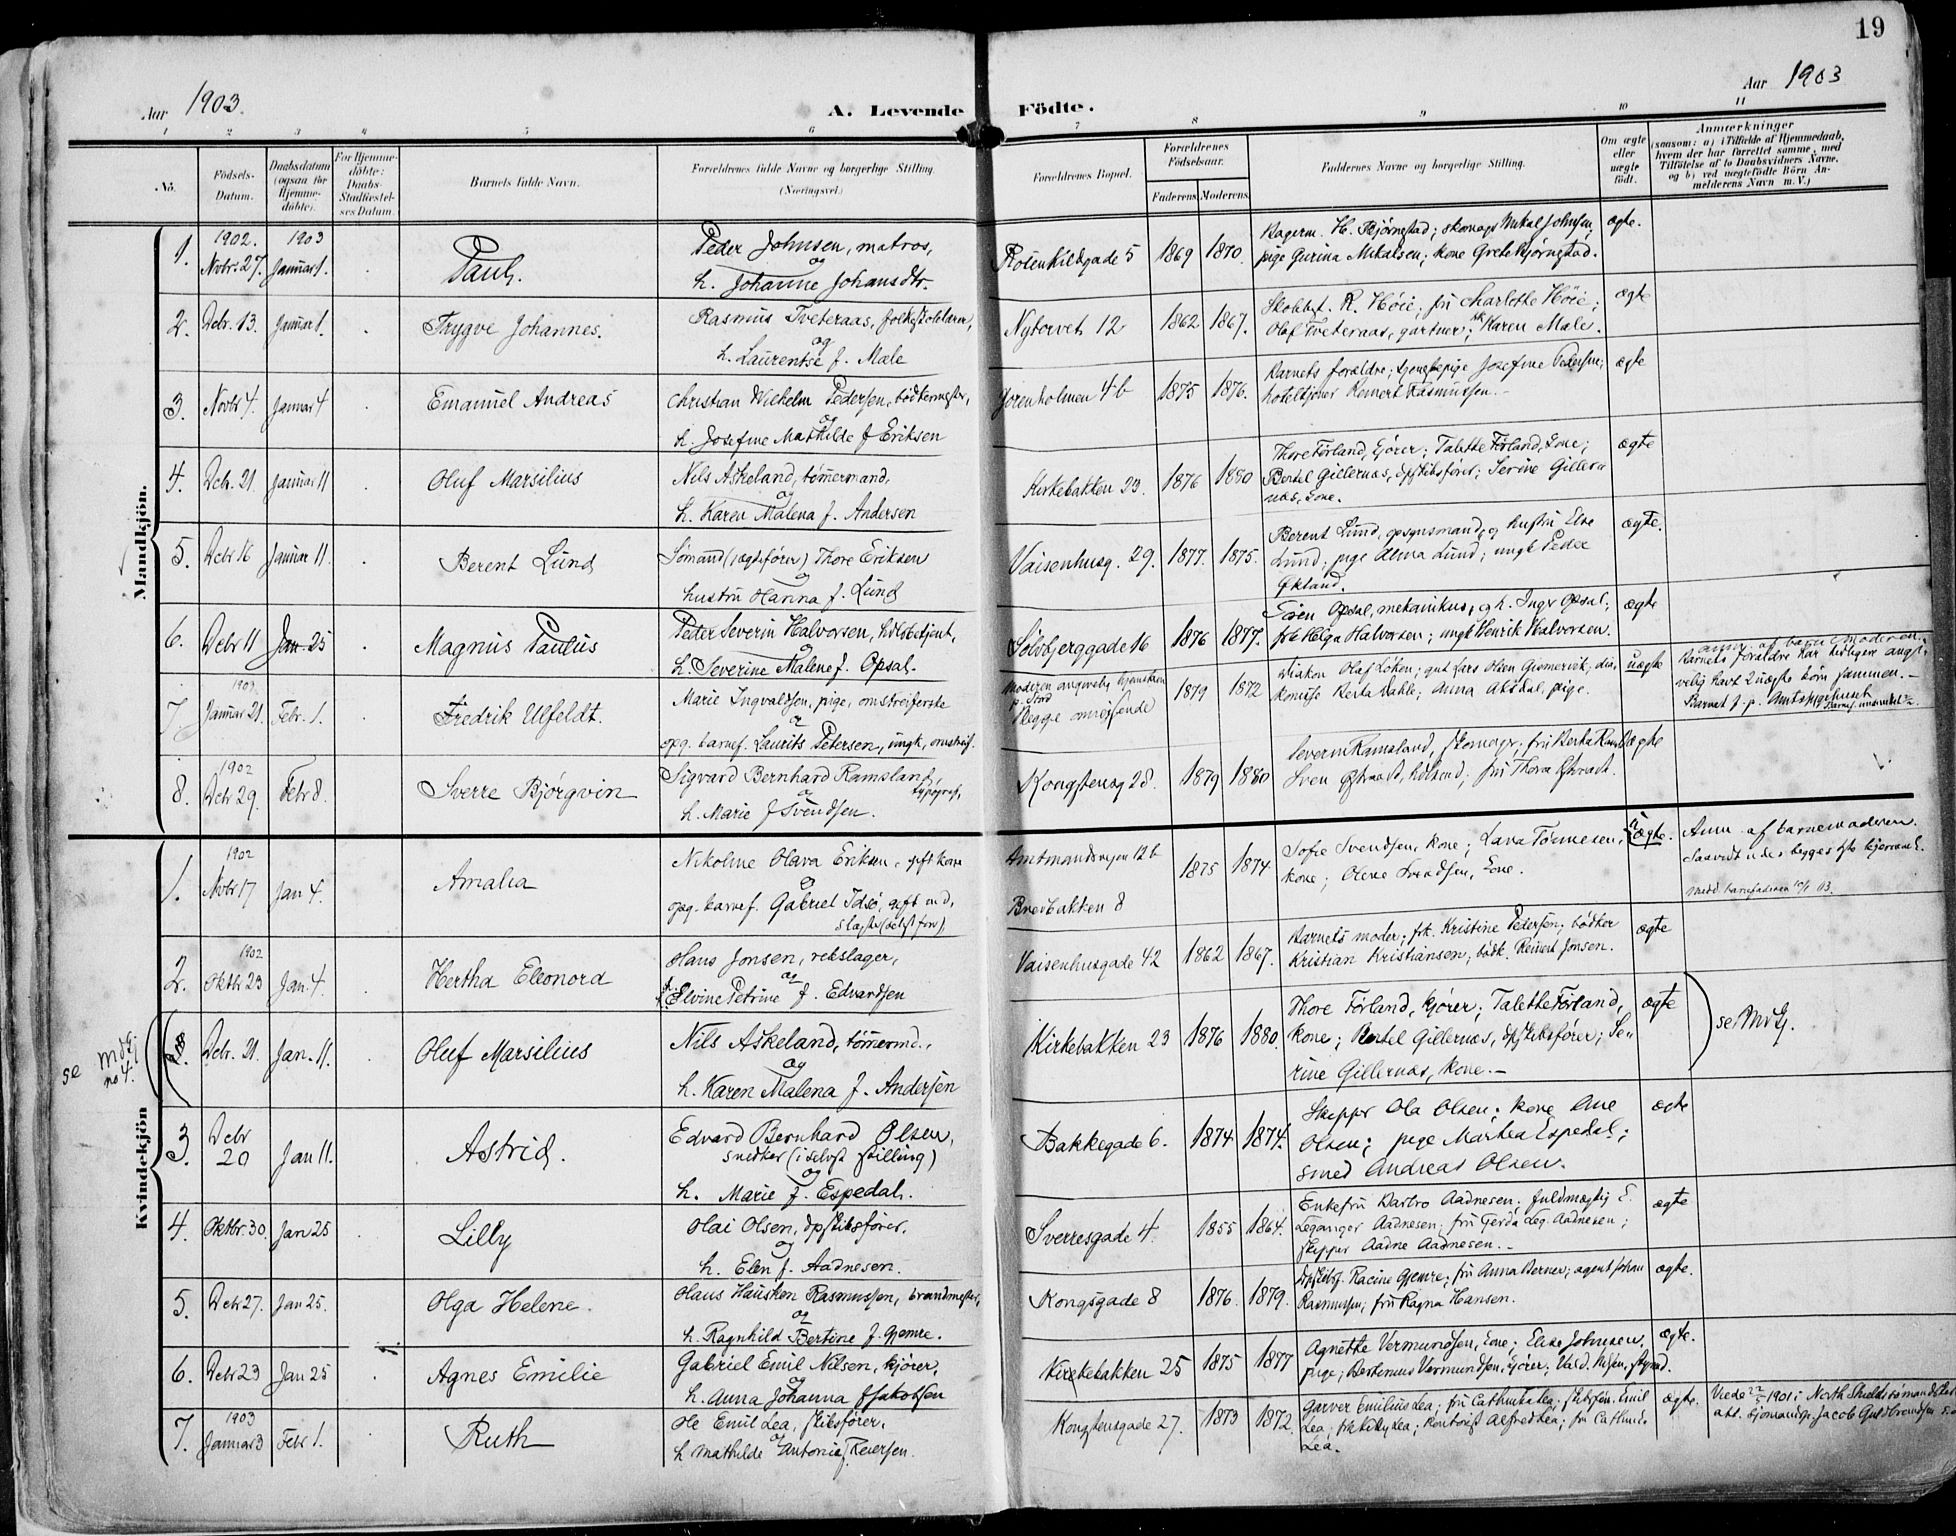 19
Aar 1903.
A. Levende Födte.
Aar 1903
1 2 3 4 5 6 7 8 9 10 11
No.
Födsels-
Datum.
Daabsdatum
(ogsaa for
Hjemme-
döbte).
For Hjemme-
döbte:
Daabs-
Stadfæstel-
ses Datum.
Barnets fulde Navn.
Forældrenes fulde Navne og borgerlige Stilling.
(Næringsvei.)
Forældrenes Bopæl.
Forældrenes
Födselsaar.
Faderens Moderens
Faddernes Navne og borgerlige Stilling.
Om ægte
eller
uægte
født.
Anmærkninger
(saasom: a) i Tilfælde af Hjemmedaab,
hvem der har forrettet samme, med
Tilföielse af to Daabsvidners Navne,
og b) ved uægtefödte Börn An-
melderens Navn m. V.)
Mandkjön.
1.
1902.
Novbr. 27.
1903
Januar 1.
Paul.
Peder Johnsen, matros,
og
h. Johanne Johansdtr.
Rosenkildegade 5
1869
1870.
Bagerm. H. Bjørnestad; skomag. Mikal Johnsen,
pige Gurina Mikalsen; kone Grete Bjørnestad.
ægte.
2.
Decbr. 13.
Januar 1.
Trygve Johannes.
Rasmus Tveteraas, folkeskolelærer,
og
h. Laurentse f. Mæle
Nytorvet 12
1862
1867.
R. Høie, fru Charlotte Høie;
Olaf Tveteraas, gartner; frk. Karen Mæle.
ægte
3.
Novbr 4.
Januar 4
Emanuel Andreas
Christian Wilhelm Pedersen, bødkermester,
og
h. Josefine Mathilde f. Eriksen
Jorenholmen 4 b
1875
1876.
Barnets forældre; tjenestepige Josefine Pedersen;
hoteltjener Reinert Rasmussen.-
ægte
4.
Dcbr. 21.
Januar 11
Oluf Marsilius
Nils Askeland, tømmermand,
og
h. Karen Malena f. Andersen
Kirkebakken 23.
1876
1880
Thore Førland, kjører; Talette Førland, kone;
Bertel Gillernæs, dpskibsfører; Serine Giller-
næs, kone.
ægte
5.
Decbr 16
Januar 11.
Berent Lund
Sömand (jagtsfører) Thore Eriksen
og
hustru Hanna f. Lund
Vaisenhusg. 29.
1877.
1875.
Berent Lund, opsynsmand, og hustru Else
Lund; pige Alma Lund; ungk. Peder
Økland.
ægte.
6.
Decbr 11
Jan. 25
Magnus Paulus
Peder Severin Halvorsen,
h. Severine Malene f. Opsal.
Sølvberggade 16
1876
1877.
Opsal, mekanikus, og h. Inger Opsal;
frk Helga Halvorsen; ungk Henrik Halvorsen.
ægte
7.
1903.
Januar 21.
Febr. 1.
Fredrik Ulfeldt.
Marie Ingvaldsen, pige, omstreiferske
og
opg. barnef. Laurits Petersen, ungk, omstreif.
Moderen angivelig hjemstavn
p. Stord
Begge omreisende
1879
1872
Diakon Olaf Löken; gut Lars Olsen Gismervik; dia-
konisse Berta Dahle; Anna Aksdal, pige.
uægte
anm. af barnemoderen.
Barnets forældre har tidligere angi-
velig havt 2 uægte børn sammen.-
Barnet f. p. Amtssygehuset
8.
1902
Dcbr 29.
Febr 8.
Sverre Bjørgvin
Sigvard Bernhard Ramsland,
typograf,
og
h. Marie f Svendsen.
Kongstensg 28.
1879
1880
Severin Ramsland, skomager; fru Berta Ramsl.
Sven Østraadt, fru Thora Østraadt.
ægte
Kvindekjön
1.
1902
Novbr 17
Jan 4.
Amalia
Nikoline Olava Eriksen, gift kone
og
opg. barnef. Gabriel Idsø, gift md,
slagter (selvst. forr).
Amtmandsveien 12 b
Breibakken 8
1875
1874
Sofie Svendsen, kone; Lava Tönnesen,
kone; Olene Svendsen, kone.
uægte.
Anm af barnemoderen.
Saavidt vides begges 1ste hjemme.
2.
1902
Oktbr 23
Jan. 4.
Hertha Eleonora
Hans Jonsen, rebslager,
og
h. Elvine Petrine f. Edvardsen
Vaisenhusgade 42
1862
1867.
Barnets moder; frk. Kristine Pedersen; bødker
Kristian Kristiansen; bødk. Reinert Jonsen.
ægte
se Mdkj
no 4.
Dcbr. 21
Jan. 11.
Oluf Marsilius
Nils Askeland, tømmermd.,
og
h. Karen Malena f. Andersen
Kirkebakken 23
1876
1880.
Thore Førland, kjører; Talette Førland,
kone; Bertel Gillernæs, dpskibsfører; Se-
rine Gillernæs, kone.-
ægte
se Mdkj.
3.
Dcbr
20
Jan 11.
Astrid.
Edvard Bernhard Olsen,
snedker (i selvst stilling)
og
h. Marie f. Espedal.
Bakkegade 6.
1874
1874.
Skipper Ola Olsen; kone Ane
Olsen; pige Marthea Espedal;
smed Andreas Olsen.
ægte
4.
Oktbr. 30.
Jan 25
Lilly
Olai Olsen, dpskibsfører.
og
h. Elen f. Aadnesen.
Sverresgade 4.
1855
1864.
Enkefru Barbro Aadnesen; fuldmægtig E.
Leganger Aadnesen; fru Gerda Leg. Aadnesen;
skipper Aadne Aadnesen.-
ægte
5.
Decbr 27.
Jan 25.
Olga Helene.
Olaus Hausken Rasmussen, brandmester,
og
h. Ragnhild Bertine f. Gjemre.
Kongsgade 8
1876.
1879.
dpskibsf. Racine Gjemre; fru Anna Berner; agent Johan
Rasmussen; fru Ragna Hansen.
ægte.
6.
Decbr 23
Jan 25
Agnes Emilie
Gabriel Emil Nilsen, kjører,
og
h. Anna Johanna f Jakobsen
Kirkebakken 25
1875
1877
Agnette Vermundsen, kone; Elise Johnsen,
pige; Bertinius Vermundsen, kjører;
ægte.
7.
1903
Januar 3
Febr 1.
Ruth
Ole Emil Lea, skibsfører.
og
h Mathilde Antonie f. Reiersen.
Kongstensgade 27.
1873
1872.
Garver Emilius Lea; fru Cathinka Lea; Emil
Lea; kontorist Alfred Lea; fru Cathinka
Lea.
ægte.
Viede 1901 i North Shields sömandskirke